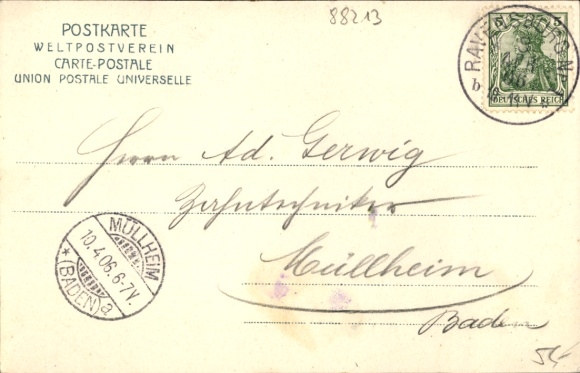 88213
POSTKARTE
WELTPOSTVEREIN
CARTE-POSTALE
UNION POSTALE UNIVERSELLE
RAVENSBURG
5 5
DEUTSCHES REICH
Herrn Ad. Gerwig
Zahntechniker
Müllheim
Baden
MÜLLHEIM
10.4.06. 6-7V.
* (BADEN) a